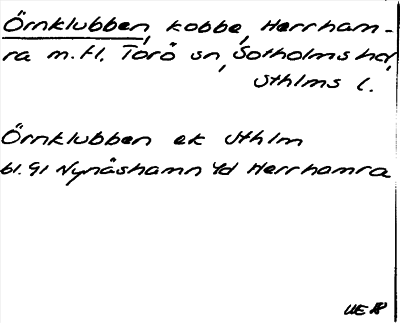 Örnklubben, kobbe, Herrham-
ra m.fl. Torö sn, Sotholms hd,
Sthlms l.
Örnklubben ek Sthlm
bl. 91 Nynäshamn Yd Herrhamra